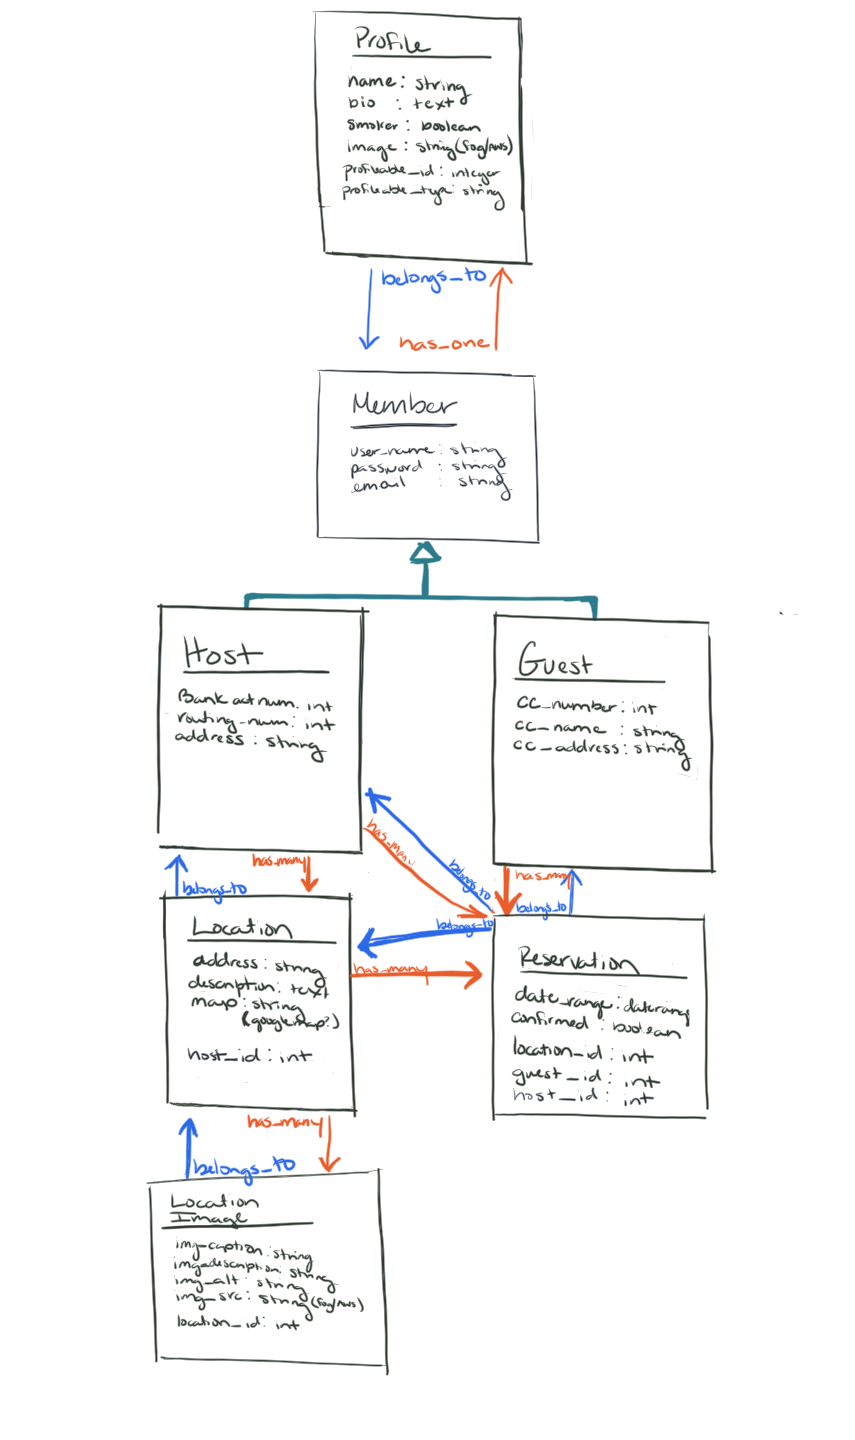 Profile
name: string
bio : text
smoker: boolean
image: string (fog/AWS)
profileable_id: integer
profileable_type: string
belongs_to
has_one
Member
user_name: string
password : string
email : string
Host
Bank act num. int
routing-num: int
address: string
Guest
CC_number: int
cc_name : string
cc_address: string
has_many
belongs_to
has_many
belongs_to
has_many
belongs_to
Location
address: string
description: text
map: string
(googlemap?)
host_id: int
belongs_to
has_many
Reservation
date_range: daterang
confirmed : boolean
location_id: int
guest_id: int
host_id: int
has_many
belongs_to
Location
Image
img-caption: string
img-description: string
img_alt: string
img_src: string (fog/AWS)
location_id: int